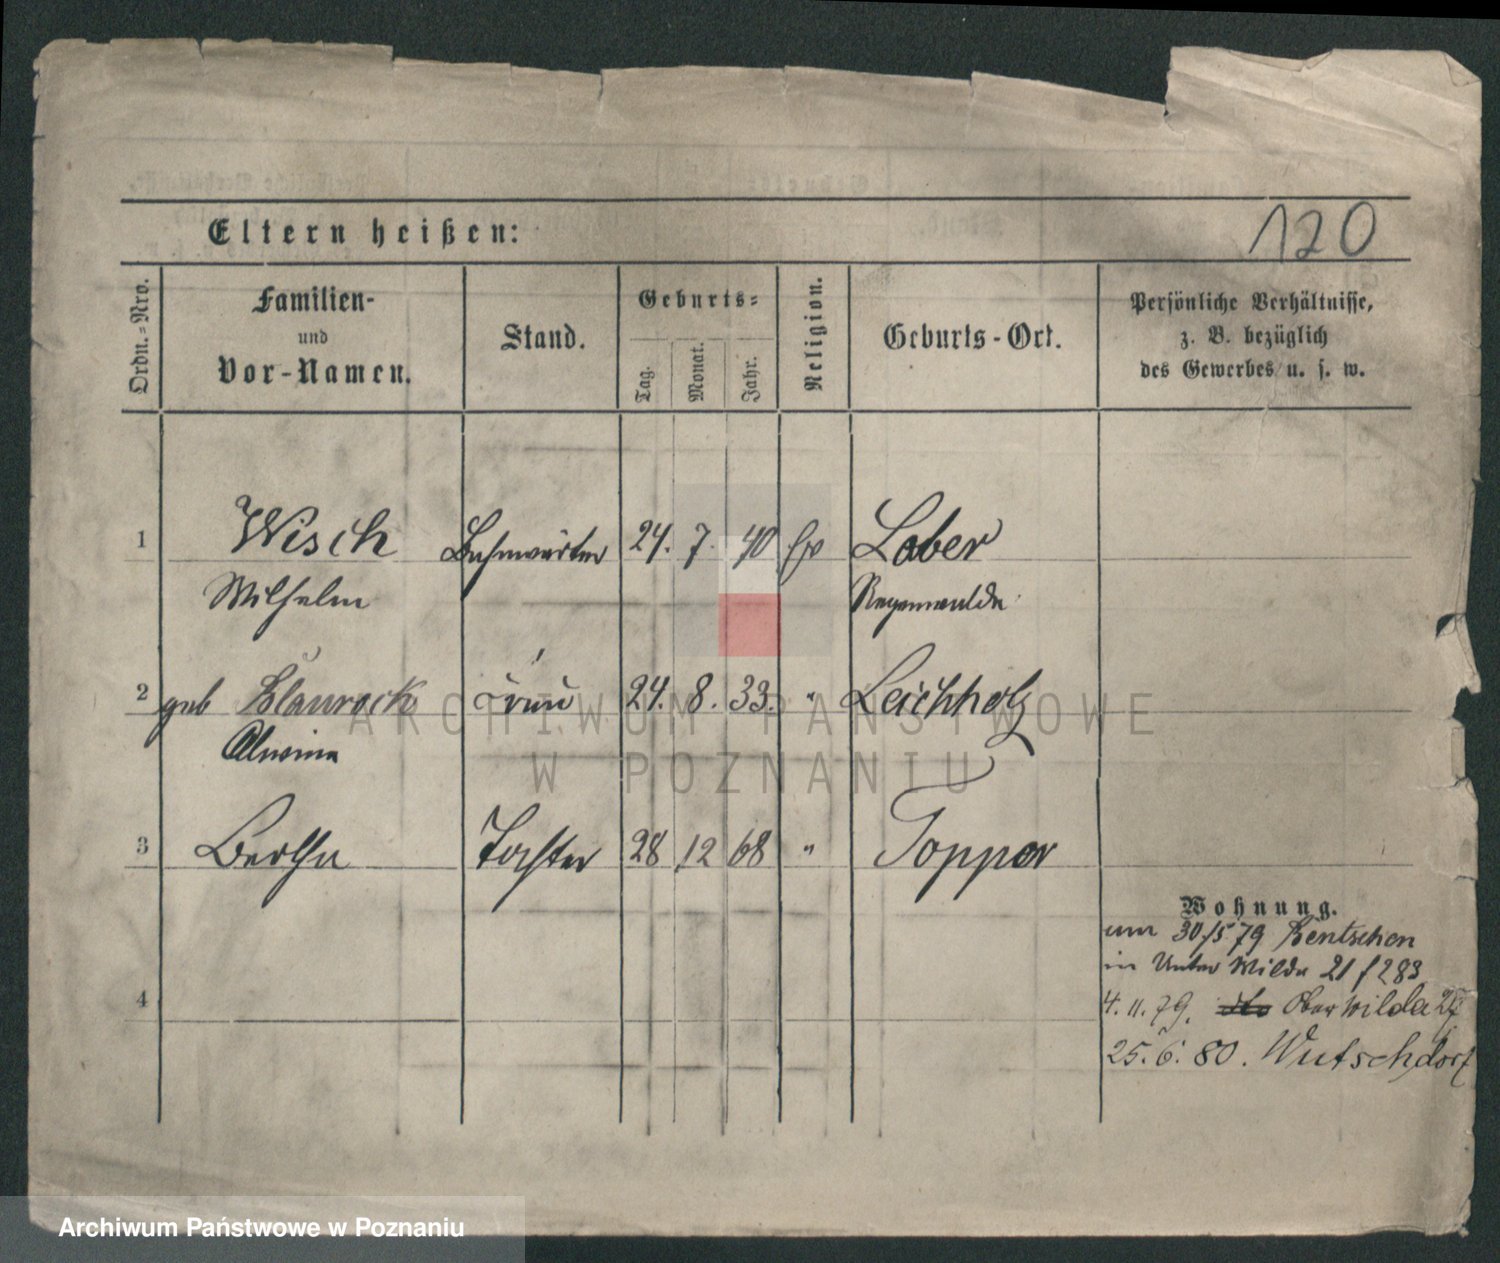 Eltern heißen:
120
Ordn.-Nro.
Familien-
und
Vor-Namen.
Stand.
Geburts-
Tag.
Monat.
Jahr.
Religion.
Geburts-Ort.
Persönliche Verhältnisse,
z. B. bezüglich
des Gewerbes u. s. w.
1 Wisch Bahnwärter 24. 7. 40 Ev Laber
Wilhelm Regenwalde
2 geb Blaurock Frau 24. 8. 33. " Leichholz
Alwine
3 Bertha Tochter 28 12 68 " Topper
Wohnung.
am 30/5 79 Bentschen
in Unter Wilda 21 / 283
4
4. 11. 79. Ober Wilda 27
25. 6. 80. Wutschdorf
ARCHIWUM PAŃSTWOWE
W POZNANIU
Archiwum Państwowe w Poznaniu